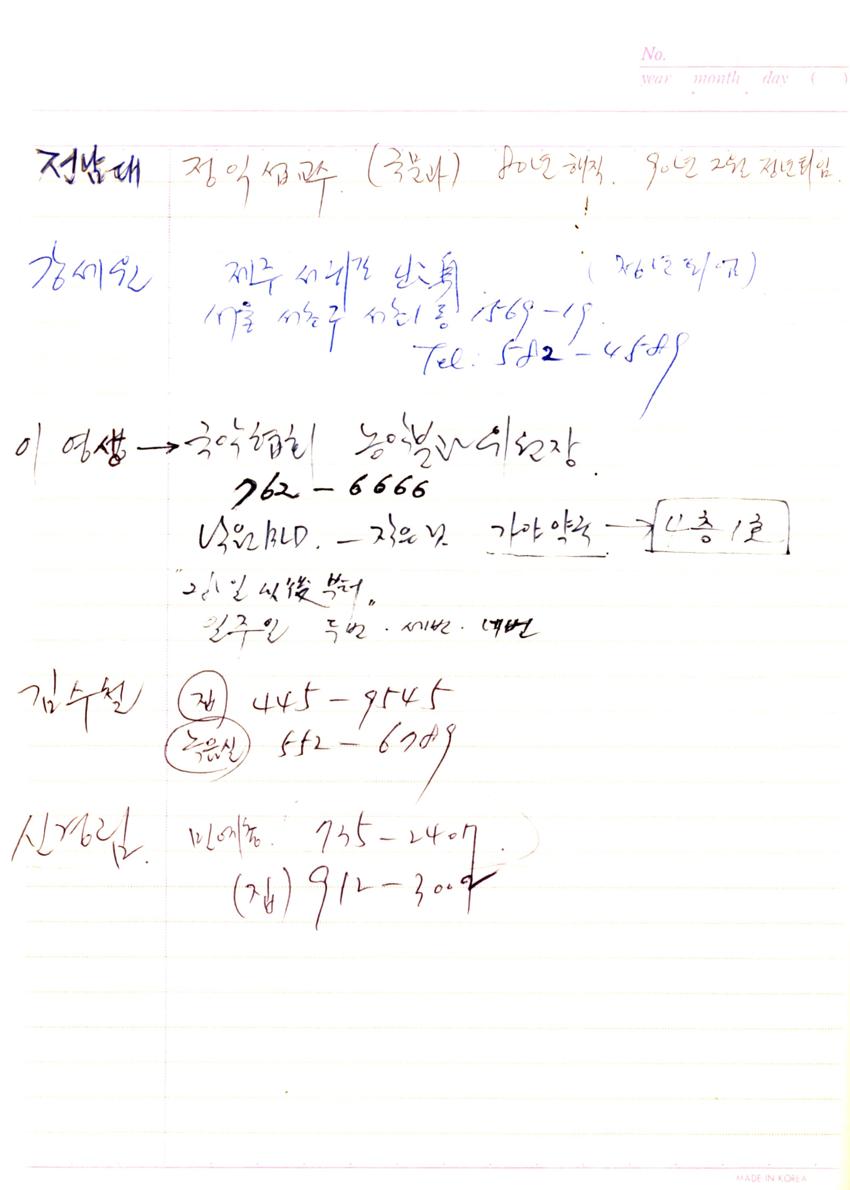 No.
year month day ( )
전남대 정익섭교수. (국문과) 80년 해직. 90년 2월 정년퇴임.
!
강세원 제주 서귀포 出身 (정년퇴임)
서울 서초구 서초1동 1569-19.
Tel: 582-4589
이영생 → 국악협회 농악분과위원장.
762-6666
낙원BLD. - 가야약국 → 4층 1호
일 以後 부터"
일주일 두번. 세번. 네번
김수철 집 445-9545
녹음실 552-6789
신경림. 민예총. 735-2407.
(집) 912-3002
MADE IN KOREA